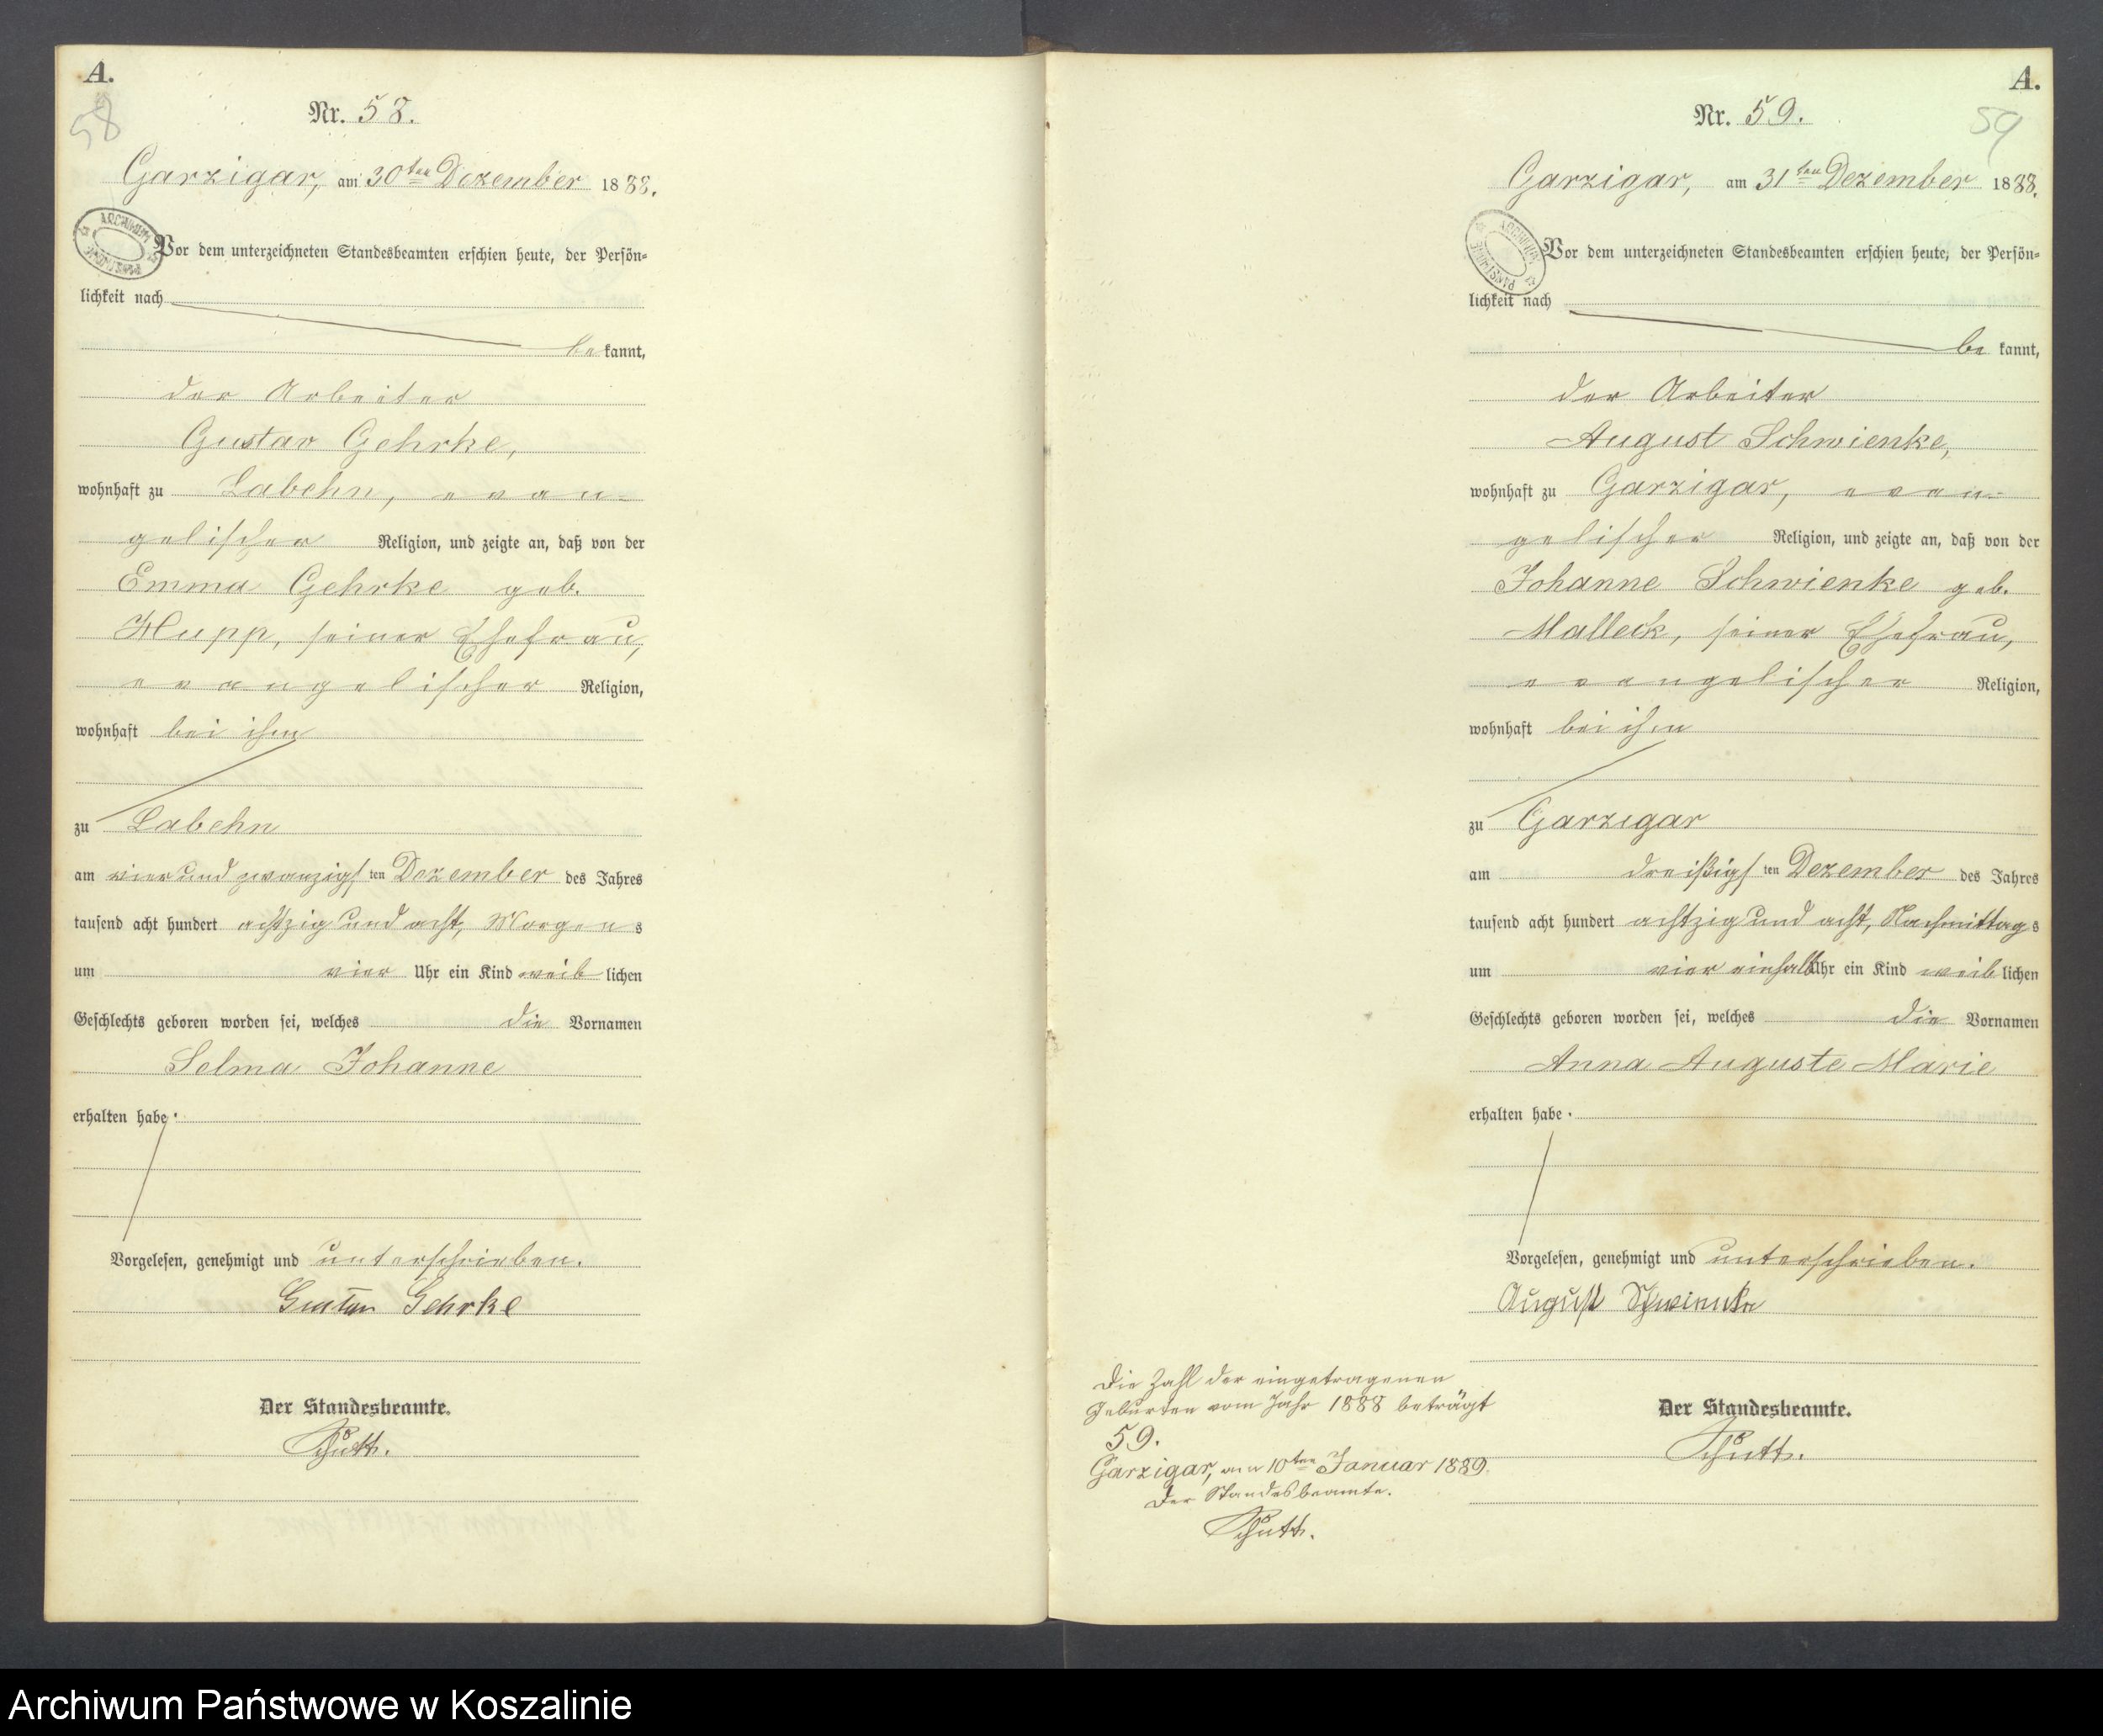 A.
58
Nr. 58.
Garzigar, am 30ten Dezember 1888.
ARCHIWUM
Vor dem unterzeichneten Standesbeamten erschien heute, der Persön=
lichkeit nach
be kannt,
der Arbeiter
Gustav Gehrke,
wohnhaft zu Labehn, evan-
gelischer Religion, und zeigte an, daß von der
Emma Gehrke geb.
seiner Ehefrau,
evangelischer Religion,
wohnhaft bei ihm
zu Labehn
am vier und zwanzigsten Dezember des Jahres
tausend acht hundert achtzig und acht, Morgens
um vier Uhr ein Kind weiblichen
Geschlechts geboren worden sei, welches die Vornamen
Selma Johanne
erhalten habe.
Vorgelesen, genehmigt und unterschrieben.
Gustav Gehrke
Der Standesbeamte.
Schütt.
A.
59
Nr. 59.
Garzigar, am 31ten Dezember 1888.
ARCHIWUM
Vor dem unterzeichneten Standesbeamten erschien heute, der Persön=
lichkeit nach
be kannt,
der Arbeiter
August Schwienke,
wohnhaft zu Garzigar, evan-
gelischer Religion, und zeigte an, daß von der
Johanne Schwienke geb.
Malleck, seiner Ehefrau,
evangelischer Religion,
wohnhaft bei ihm
zu Garzigar
am dreißigsten Dezember des Jahres
tausend acht hundert achtzig und acht, Nachmittags
um vier einhalb Uhr ein Kind weiblichen
Geschlechts geboren worden sei, welches die Vornamen
Anna Auguste Marie
erhalten habe.
Vorgelesen, genehmigt und unterschrieben.
August Schwienke
Der Standesbeamte.
Schütt.
Die Zahl der eingetragenen
Geburten vom Jahr 1888 beträgt
59.
Garzigar, am 10ten Januar 1889.
Der Standesbeamte.
Schütt.
Archiwum Państwowe w Koszalinie